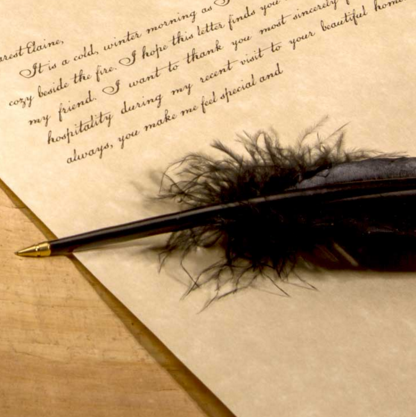 arest Elaine,
It is a cold, winter morning as
cozy beside the fire. I hope this letter finds you
my friend. I want to thank you most sincerely
hospitality during my recent visit to your beautiful home
always, you make me feel special and